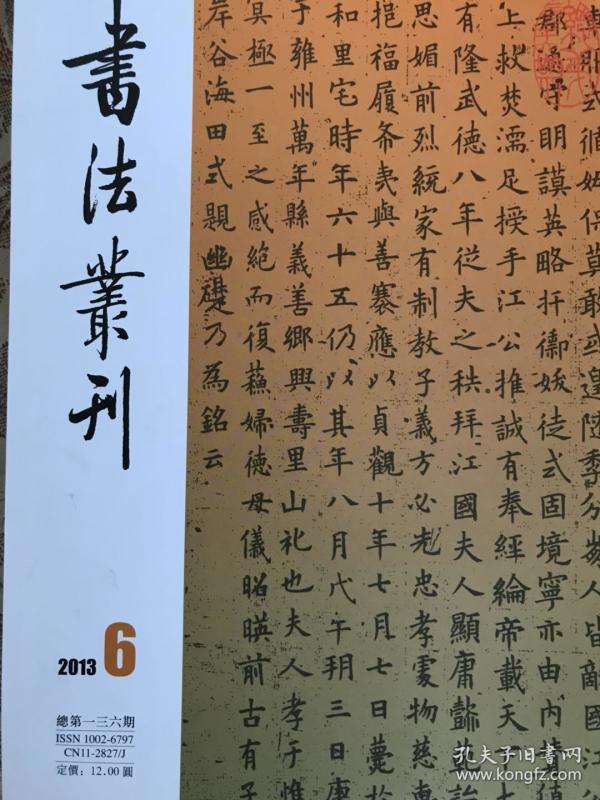 書法叢刊
2013 6
總第一三六期
ISSN 1002-6797
CN11-2827/J
定價：12.00圓
式循姆保莫敢或遑陸季分崩人皆敵國江公
郡邁尋明謨英略扞禦妖徒式固境寧亦由內
上救焚濡足授手江公推誠有奉經綸帝載天
有隆武德八年從夫之秩拜江國夫人顯庸
思媚前烈統家有制教子義方必先忠孝處物慈惠
挹福履希夷與善褰應以貞觀十年七月七日薨於
和里宅時年六十五仍以其年八月戊午朔三日庚
于雍州萬年縣義善鄉興壽里山礼也夫人孝于惟
其極一至之感絶而復蘇婦德母儀昭暎前古有子
岸谷海田式題幽礎乃為銘云
孔夫子旧书网
www.kongfz.com